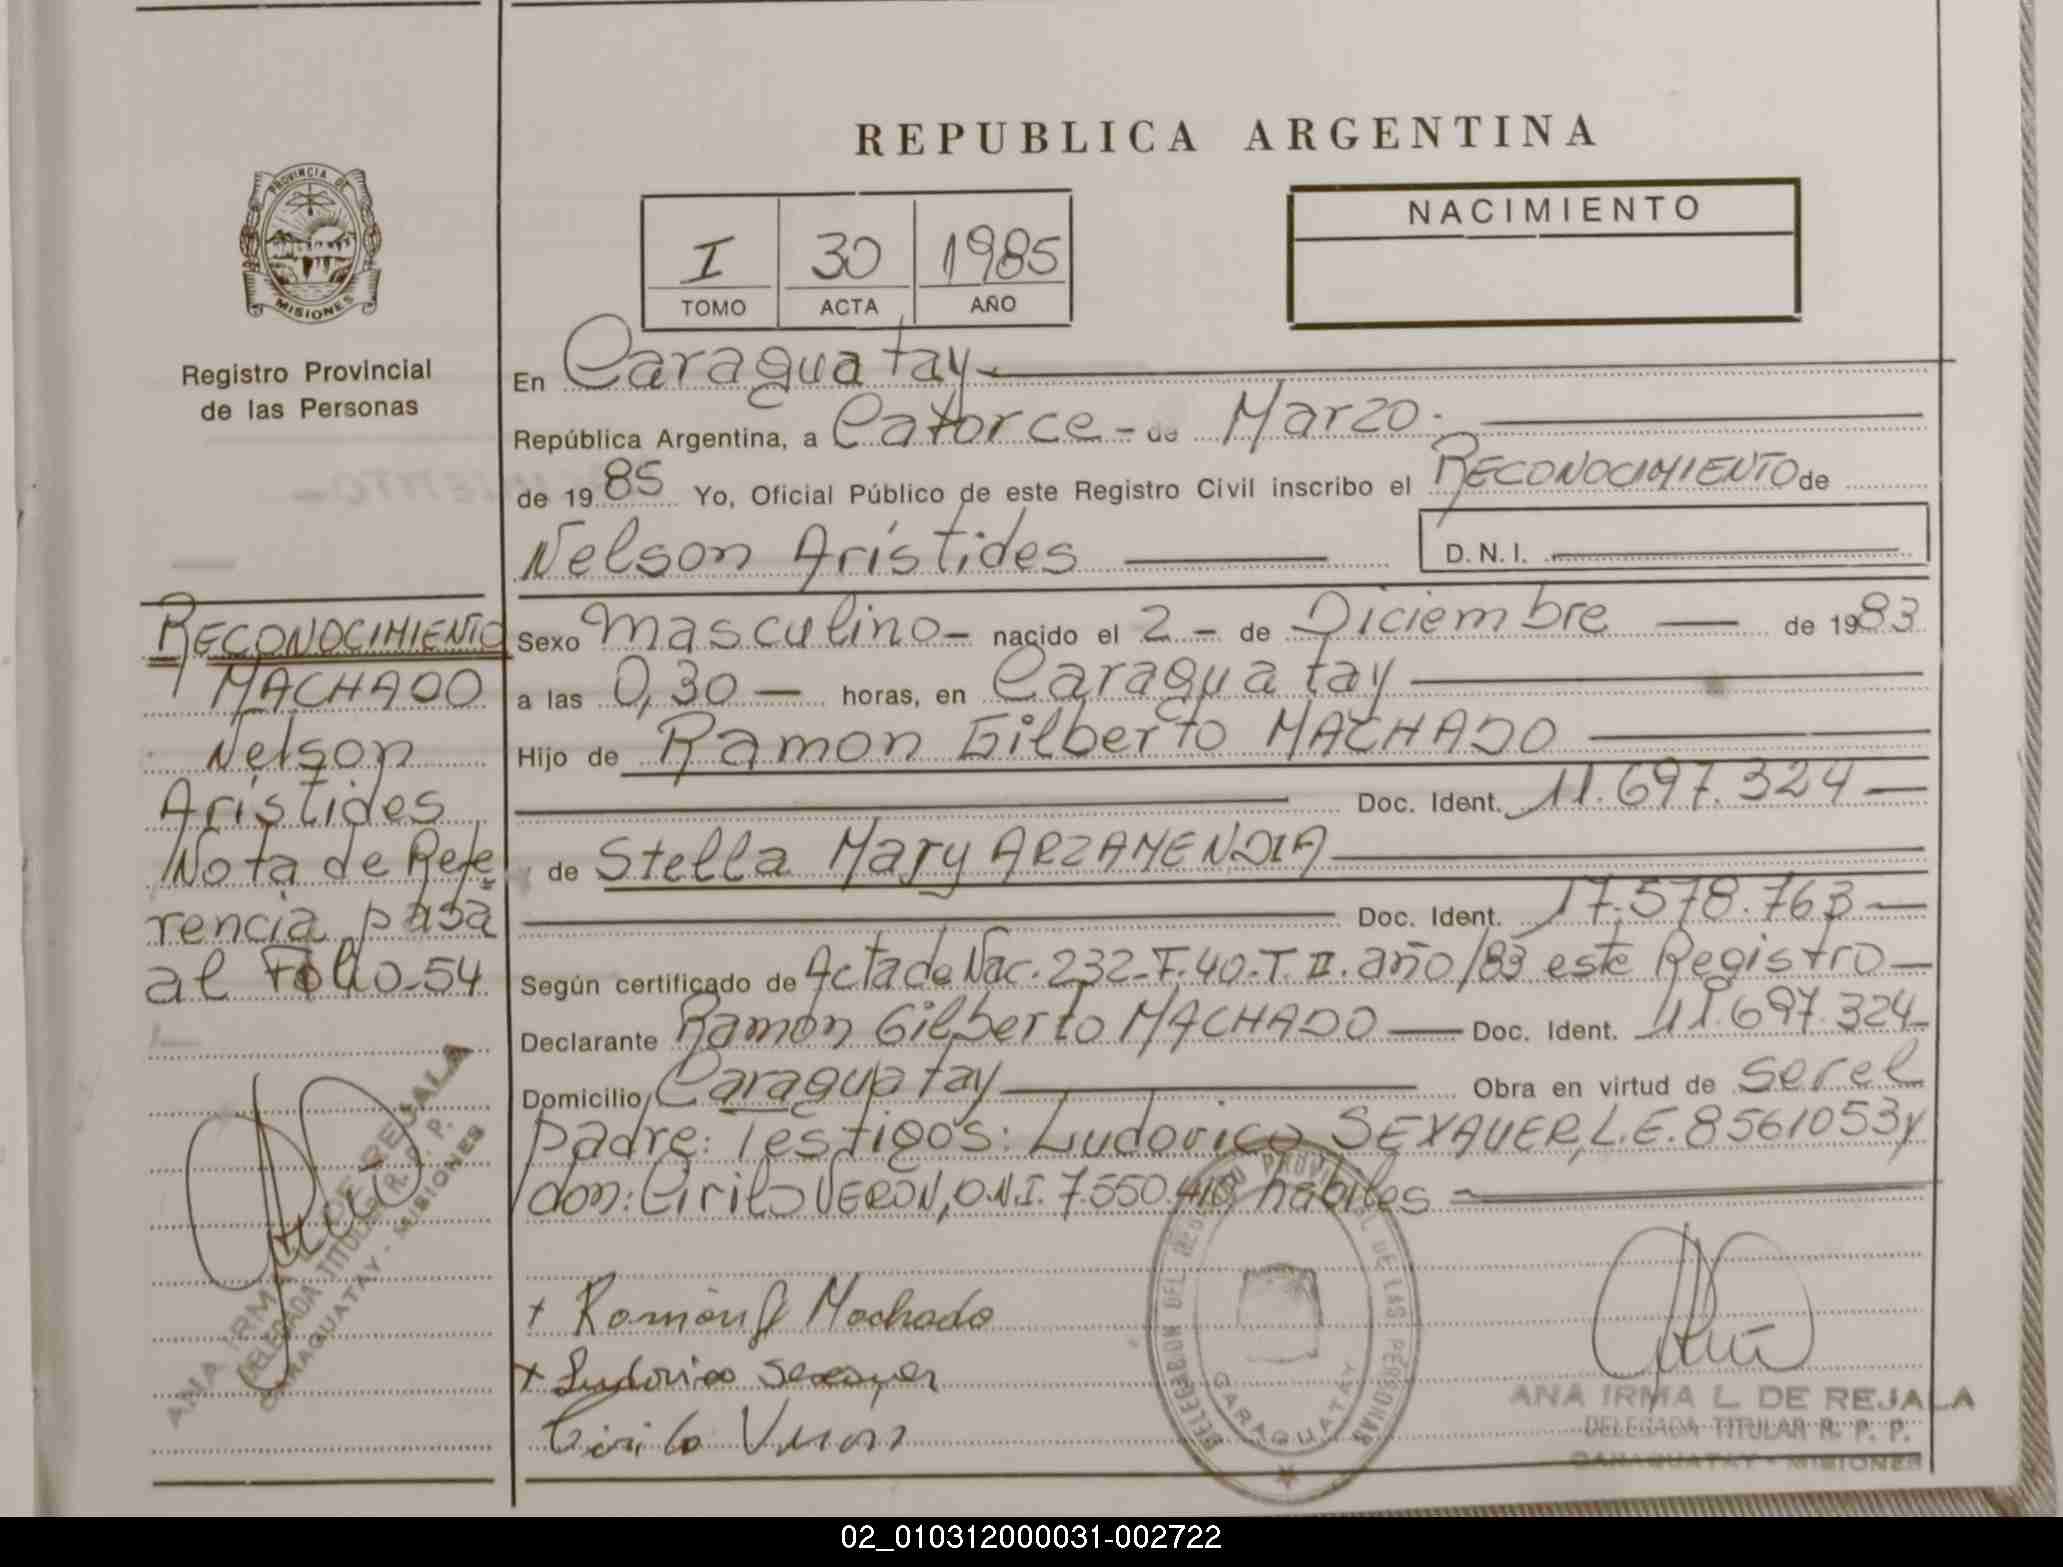 REPUBLICA ARGENTINA
PROVINCIA DE
MISIONES
Registro Provincial
de las Personas
I 30 1985
TOMO ACTA AÑO
NACIMIENTO
En Caraguatay
República Argentina, a Catorce - de Marzo.
de 1985 Yo, Oficial Público de este Registro Civil inscribo el RECONOCIMIENTO de
Nelson Arístides
D.N.I.
Sexo masculino - nacido el 2 - de Diciembre de 1983
a las 0,30 - horas, en Caraguatay
Hijo de Ramon Gilberto MACHADO
Doc. Ident. 11.697.324
y de Stella Mary ARZAMENDIA
Doc. Ident. 17.578.763
Según certificado de Acta de Nac. 232-F.40-T.II. año/83 este Registro
Declarante Ramón Gilberto MACHADO Doc. Ident. 11.697.324
Domicilio Caraguatay Obra en virtud de ser el
padre: Testigos: Ludovico SEXAUER, L.E. 8561053 y
don: Cirilo VERON, D.N.I. 7.550.410 hábiles
+ Ramón G Machado
+ Ludovico Sexauer
Cirilo Veron
RECONOCIMIENTO
MACHADO
Nelson
Arístides
Nota de Refe
rencia pasa
al Folio-54
ANA IRMA L. DE REJALA
DELEGADA TITULAR R. P. P.
CARAGUATAY - MISIONES
DELEGACION DEL REGISTRO PROVINCIAL DE LAS PERSONAS
CARAGUATAY
ANA IRMA L. DE REJALA
DELEGADA TITULAR R. P. P.
CARAGUATAY - MISIONES
02_010312000031-002722